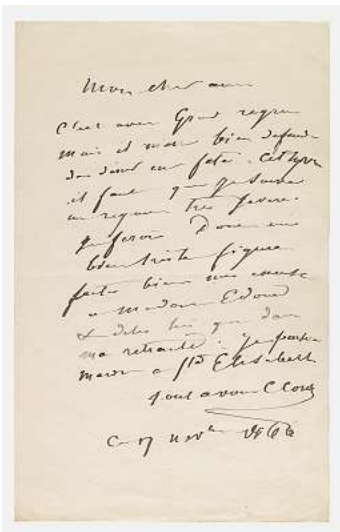 Mon cher ami
C'est avec Grand regret
mais il m'est bien défendu
d'aller en fête. Cet hyver
il faut que je suive
un régime très sévère.
je ferois Donc une
bien triste figure
faites bien mes excuse
a Madame Edouard
& dites lui que dans
ma retraite. je penser
a Ste Elisabeth
tout a vous C Corot
Ce 17 novbre 1866